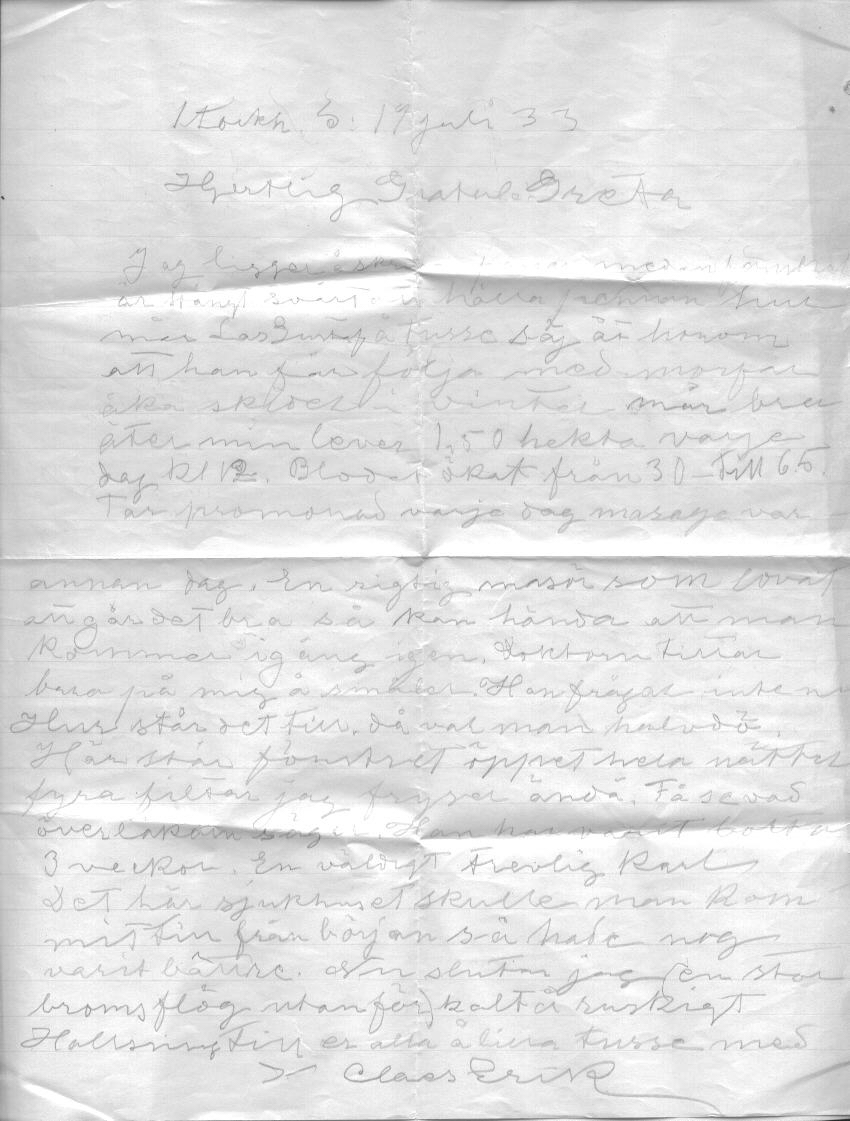 Stockh. d: 19 juli 33
Hjertlig Gratul. Greta
Jag ligger å skri medan
är stängt svårt att hålla pennan hur
mår tusse säj åt honom
att han får följa med morfar
åka skidor i vinter mår bra
äter min lever 1,50 hekta varje
dag kl 12. Blodet ökat från 30 – till 65.
Tar promonad varje dag masage var
annan dag. En rigtig masör som lovat
att går det bra så kan hända att man
kommer igång igen. Doktorn tittar
bara på mig å småler. Han frågar inte nu
Hur står det till. då var man halvdö.
Här står fönstret öppet hela nätter
fyra filtar jag fryser ändå. Få se vad
överläkarn säger. Han har varit borta
3 veckor. En väldigt trevlig karl
Det här sjukhuset skulle man kom
mit till från början så hade nog
varit bättre. Nu slutar jag (en stor
broms flög utanför) kalt å ruskigt
Hallsning till er alla å lilla tusse med
Claes Erik